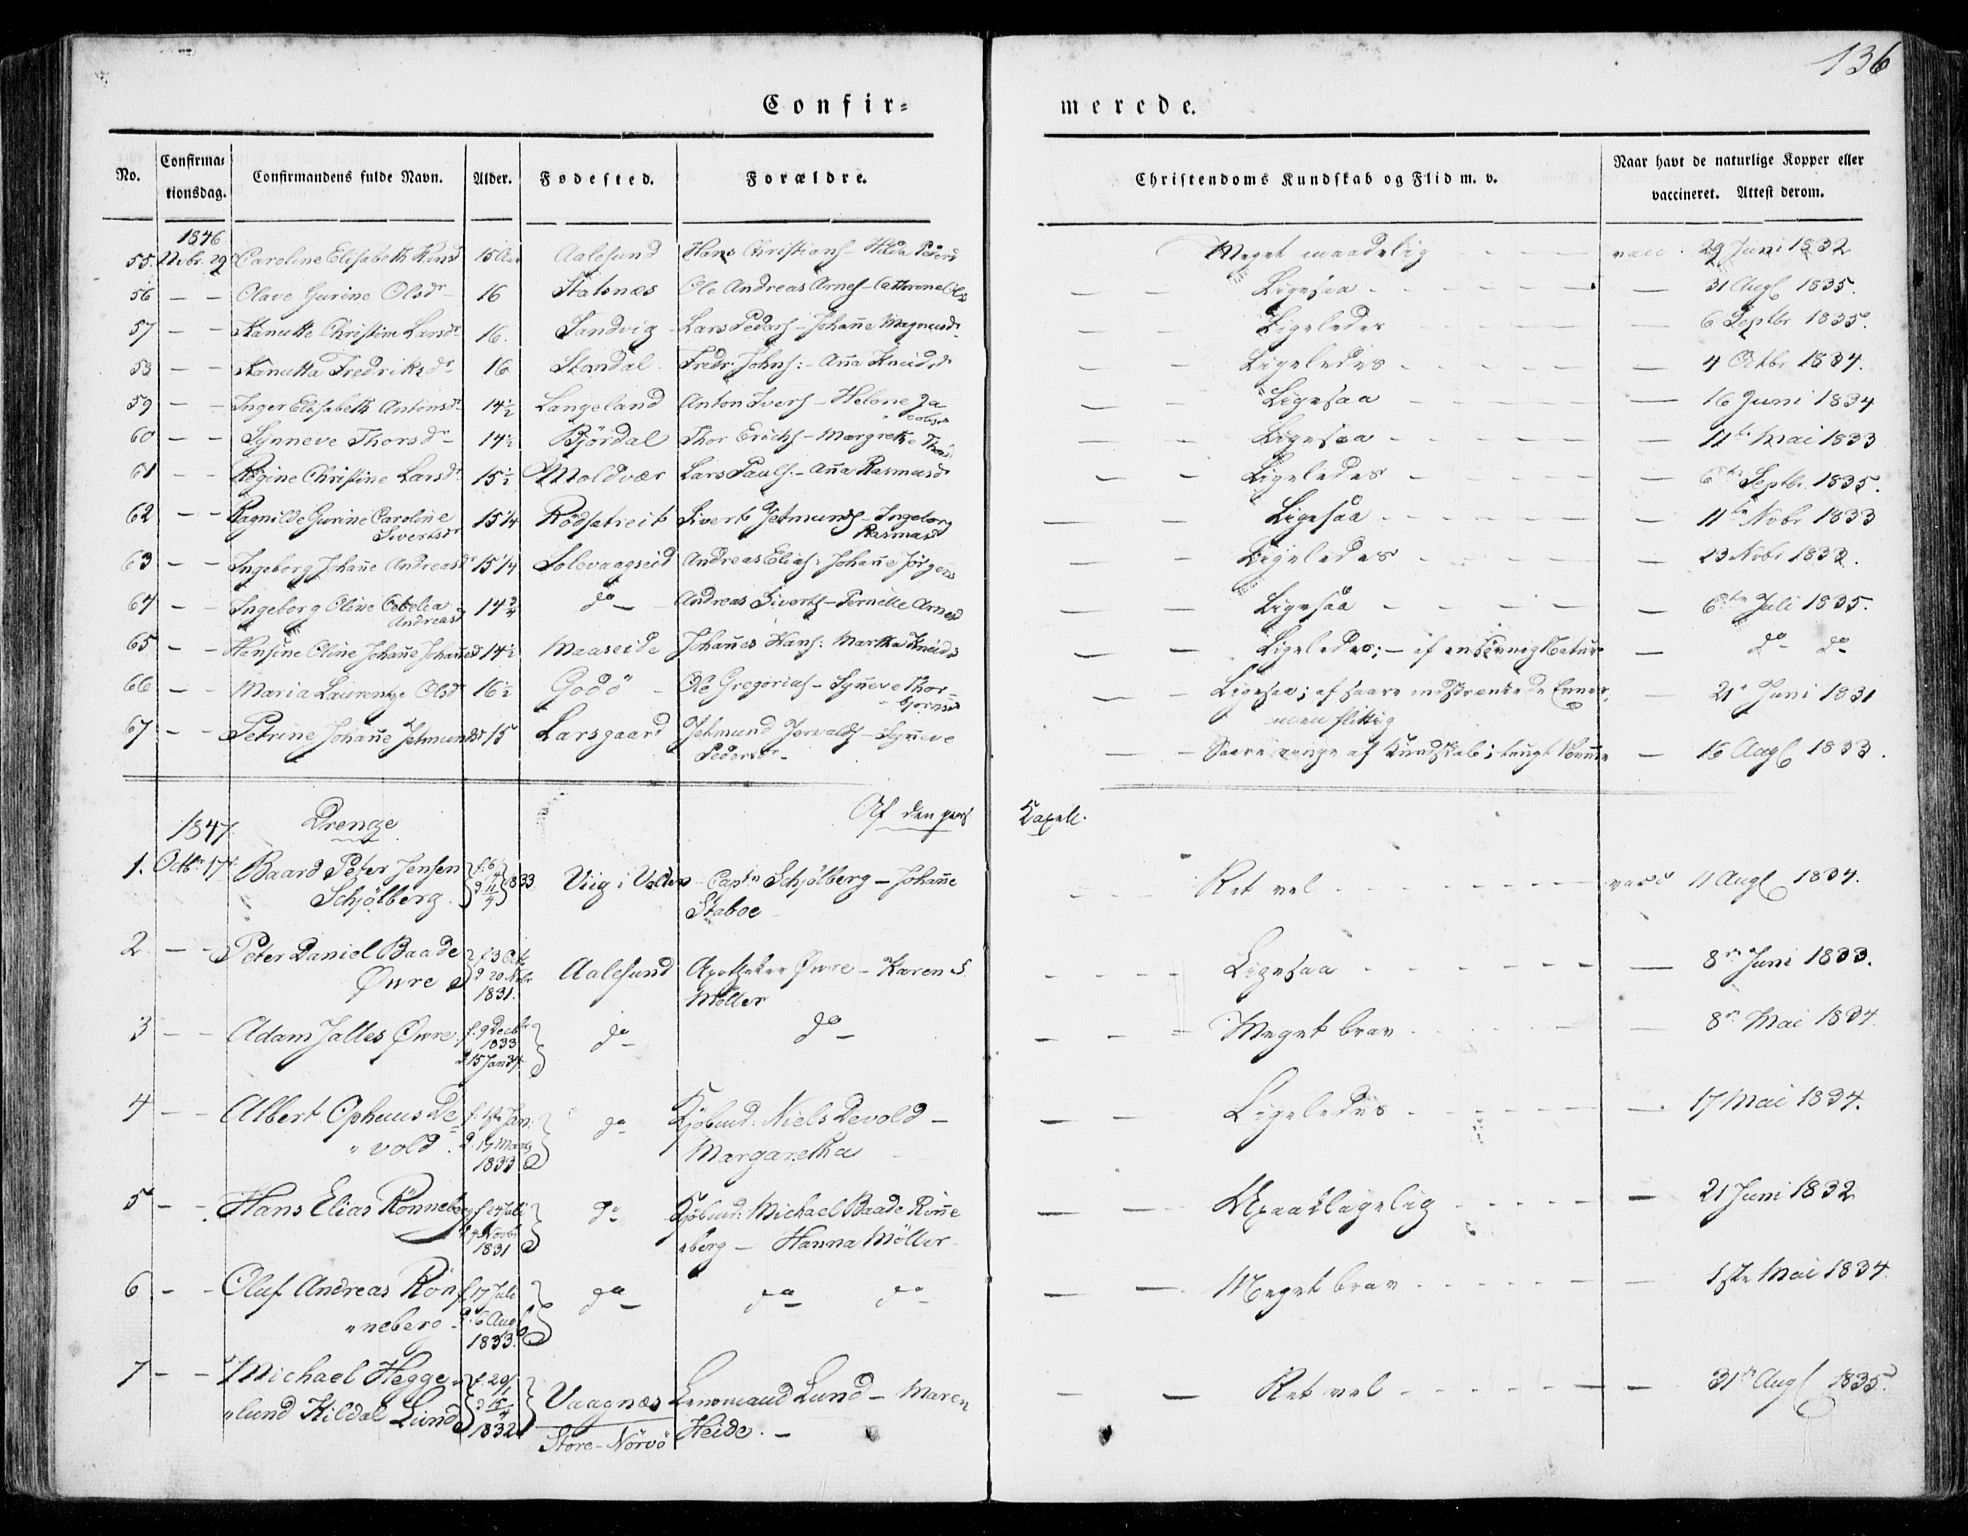 136
Confir= merede.
No. Confirma= tionsdag. Confirmandens fulde Navn. Alder. Fødested. Forældre. Christendoms Kundskab og Flid m. v. Naar havt de naturlige Kopper eller vaccineret. Attest derom.
1846
55. Novbr. 29 Caroline Elisabeth 15 Aalesund Hans Christians- Meget maadelig - - - vacc. 29 Juni 1832
56 - - Olave Gurine Olsdr 16 Slatsnæs Ole Andreas Arnes- Cathrine Ols - - Ligesaa - - - 31 Aug 1835.
57 - - Kanutte Christine Larsdr 16. Sandvig Lars Peders- Johanne Magnusdr - - Ligeledes - - - 6 Septbr 1835.
58 - - Kanutta Fredriksdr 16 Standal Fredr. Johns: Anna Knudsd - - Ligeledes - - - 4 Octbr 1834.
59 - - Inger Elisabeth Antonsdr 14½ Langeland Anton Ivers- Helene Ja
cobsd - - Ligesaa - - - 16 Juni 1834
60 - - Synneve Thorsdr 14½ Bjørdal Thor Erichs- Margrethe Thors - - Ligesaa - - - 11te Mai 1833
61 - - Regine Christine Larsdr 15½ Moldvær Lars Pauls- Anna Rasmusd - - Ligeledes - - - 6te Septbr. 1835.
62 - - Ragnilde Gurine Caroline
Sivertsdr 15¼ Rødsætreit Sivert Jetmunds- Ingeborg
Rasmusd - - Ligesaa - - - 11te Novbr 1833
63 - - Ingeborg Johanne Andreasdr 15¼ Solevaagseid Andreas Elias: Johanne Jørgens - - Ligeledes - - - 23 Novbr 1832.
64 - - Ingeborg Oline Cecelia
Andreasd 14¾ do - Andreas Siverts- Pernille Arnesd - - Ligesaa - - - 6te Juli 1835.
65 - - Hansine Oline Johanne Johannesd 14½ Maaseide Johannes Hans: Martha Knudsd - - Ligeledes; - af Natur - do do
66 - - Maria Laurentze Olsdr 16½ Godø - Ole Gregorias- Synneve Thor=
bjørnsd - - Ligesaa; af saare indskrænkede Evner,
men flittig - 21 Juni 1831
67 - - Petrine Johanne Jetmundsdr 15 Larsgaard Jetmund Jervalds- Synneve
Pedersdr - - - Saare ringe af Kundskab; - 16 Aug 1833.
1847. Drenge Af den Kapell.
1. Octbr 17de Baard Peter Jensen
Schjølberg. f. 6/4 d 11/4 1833 Viig i Volden Captn Schjølberg - Johanne
Staboe - - - Ret vel - - - vacc 11 Aug 1834.
2. - - Peter Daniel Baade
Øwre f. 3 Oct d 20 Nbr 1831. Aalesund Apotheker Øwre - Karen S.
Møller - - - Ligesaa - - - 8de Juni 1833.
3 - - Adam Jalles Øwre f. 9 Decbr 1833 d 15 Jan 34. do - do - - - - Meget brav - - - 8de Mai 1834
4 - - Albert Ophuus De=
"vold. f. 1ste Jan. d. 17 Marts 1833 do - Kjøbmd: Niels Devold -
Margaretha - - - Ligeledes - - - 17 Mai 1834.
5 - - Hans Elias Rønneberg f. 24 Juli d. 4 Novbr 1831 do - Kjøbmd: Michael Baade Rønne
"berg - Hanna Møller - - - Upaaklagelig - - - 21 Juni 1832
6 - - Oluf Andreas Røn=
"neberg - f. 17 Juli d. 6 Aug 1833. do - do - do - - - Meget brav - - - 1ste Mai 1834.
7 - - Michael Hegge=
"lund Kildal Lund f. 29/1 d 15/4 1832 Vaagnæs
Store-Nørvø Lensmand Lund - Maren
Heide. - - - Ret vel - - - 31te Aug 1835.